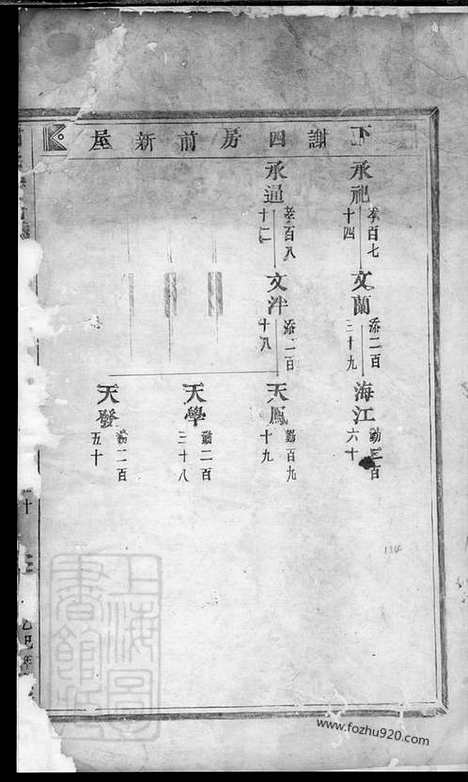 下謝四房前新屋
承祀
孝百七
十四
文蘭
添二百
三十九
海江
勛三百
六十
承通
孝百八
十二
文泮
添二百
十八
天鳳
勛百九
十九
天學
勛二百
三十八
天發
勛二百
五十
上海圖
書館藏
134
www.fozhu920.com